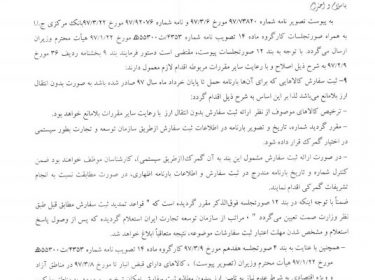 باسلام و احترام
به پیوست تصویر نامه شماره ۹۷/۷۳۸۲۰ مورخ ۹۷/۳/۶ و نامه شماره ۹۷/۹۲۰۷۶ مورخ ۹۷/۳/۲۲ بانک مرکزی ج.ا.ا
به همراه صورتجلسات کارگروه ماده ۱۴ تصویب نامه شماره ۴۳۵۳/ت۵۵۳۰۰ه مورخ ۹۷/۱/۲۲ هیأت محترم وزیران
ارسال می‌گردد. با توجه به بند ۱۲ صورتجلسات پیوست، مقتضی است دستور فرمایند بند ۹ بخشنامه ردیف ۳۶ مورخ
۹۷/۲/۹ به شرح ذیل اصلاح و با رعایت سایر مقررات مربوطه اقدام لازم معمول دارند:
۹- ثبت سفارش کالاهایی که برای آن‌ها بارنامه حمل تا پایان خرداد ماه سال ۹۷ صادر شده باشد به صورت بدون انتقال
ارز بلامانع می‌باشد لذا بر این اساس به شرح ذیل اقدام گردد:
- ترخیص کالاهای موصوف از نظر ارائه ثبت سفارش بدون انتقال ارز با رعایت سایر مقررات بلامانع خواهد بود.
- مقرر گردید شماره، تاریخ و تصویر بارنامه در اطلاعات ثبت سفارش ازطریق سازمان توسعه و تجارت بطور سیستمی
در اختیار گمرک قرار داده شود.
- در صورت ارائه ثبت سفارش مشمول این بند به آن گمرک(ازطریق سیستمی)، کارشناسان موظف خواهند بود ضمن
کنترل شماره و تاریخ بارنامه مندرج در ثبت سفارش و اطلاعات بارنامه اظهاری، در صورت مطابقت نسبت به انجام
تشریفات گمرکی اقدام نمایند.
ضمناً با توجه اینکه در بند ۱۲ صورتجلسه فوق‌الذکر مقرر گردیده است که " قواعد تمدید ثبت سفارش مطابق قبل طبق
نظر وزارت صمت تعیین می‌گردد " ، مراتب از سازمان توسعه تجارت ایران استعلام گردیده که پس از وصول پاسخ
استعلام و مشخص شدن مهلت اعتبار ثبت سفارشات موضوعه، نتیجه متعاقباً ابلاغ خواهد شد.
- همچنین با عنایت به بند ۴ صورتجلسه هفدهم مورخ ۹۷/۳/۹ کارگروه ماده ۱۴ تصویب نامه شماره ۴۳۵۳/ت۵۵۳۰۰ه
مورخ ۹۷/۱/۲۲ هیأت محترم وزیران( تصویر پیوست)، کالاهای دارای قبض انبار تا مورخ ۹۷/۳/۸ در مناطق آزاد